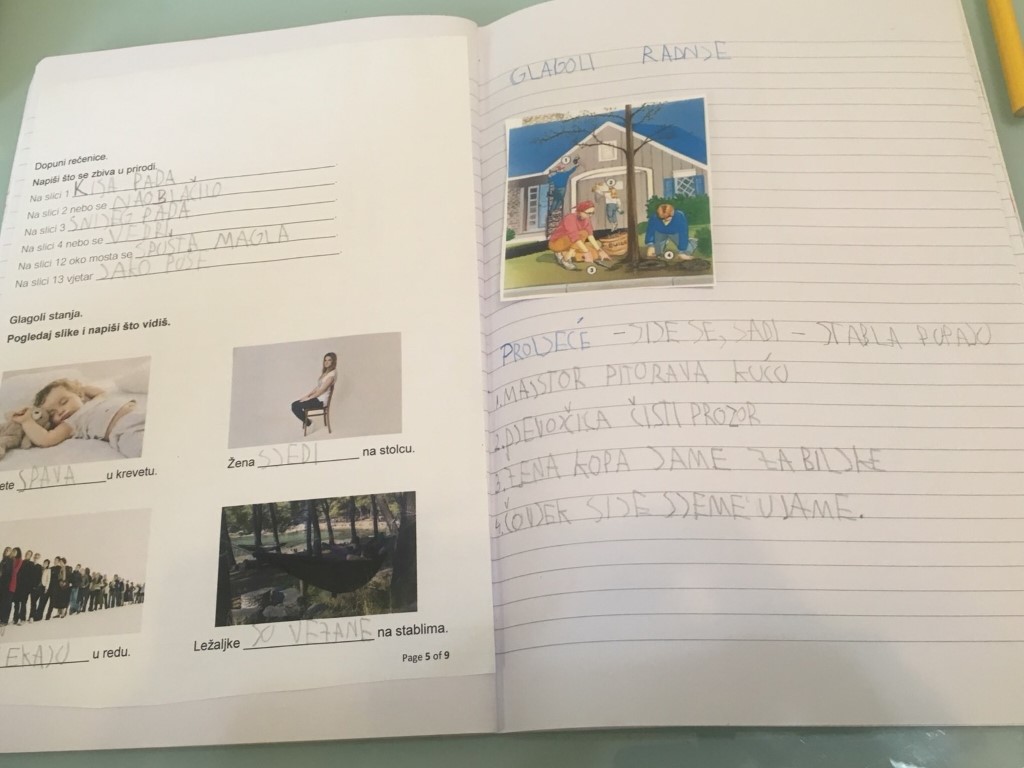 Dopuni rečenice.
Napiši što se zbiva u prirodi.
Na slici 1 KIŠA PADA
Na slici 2 nebo se NAOBLAČILO
Na slici 3 SNIJEG PADA
Na slici 4 nebo se VEDRI
Na slici 12 oko mosta se SPUSTA MAGLA
Na slici 13 vjetar JAKO PUŠE
Glagoli stanja.
Pogledaj slike i napiši što vidiš.
ete SPAVA u krevetu.
Žena SJEDI na stolcu.
EKAJU u redu.
Ležaljke VEZANE na stablima.
Page 5 of 9
GLAGOLI RADNJE
1
2
3
4
PROLJEĆE – SIJE SE, SADI – STABLA PUPAJU
1. MAJSTOR PITORAVA KUĆU
2. DJEVOŽICA ČISTI PROZOR
3. ŽENA KOPA JAME ZA BILJKE
4. ČOVJEK SIJE SJEME U JAME.